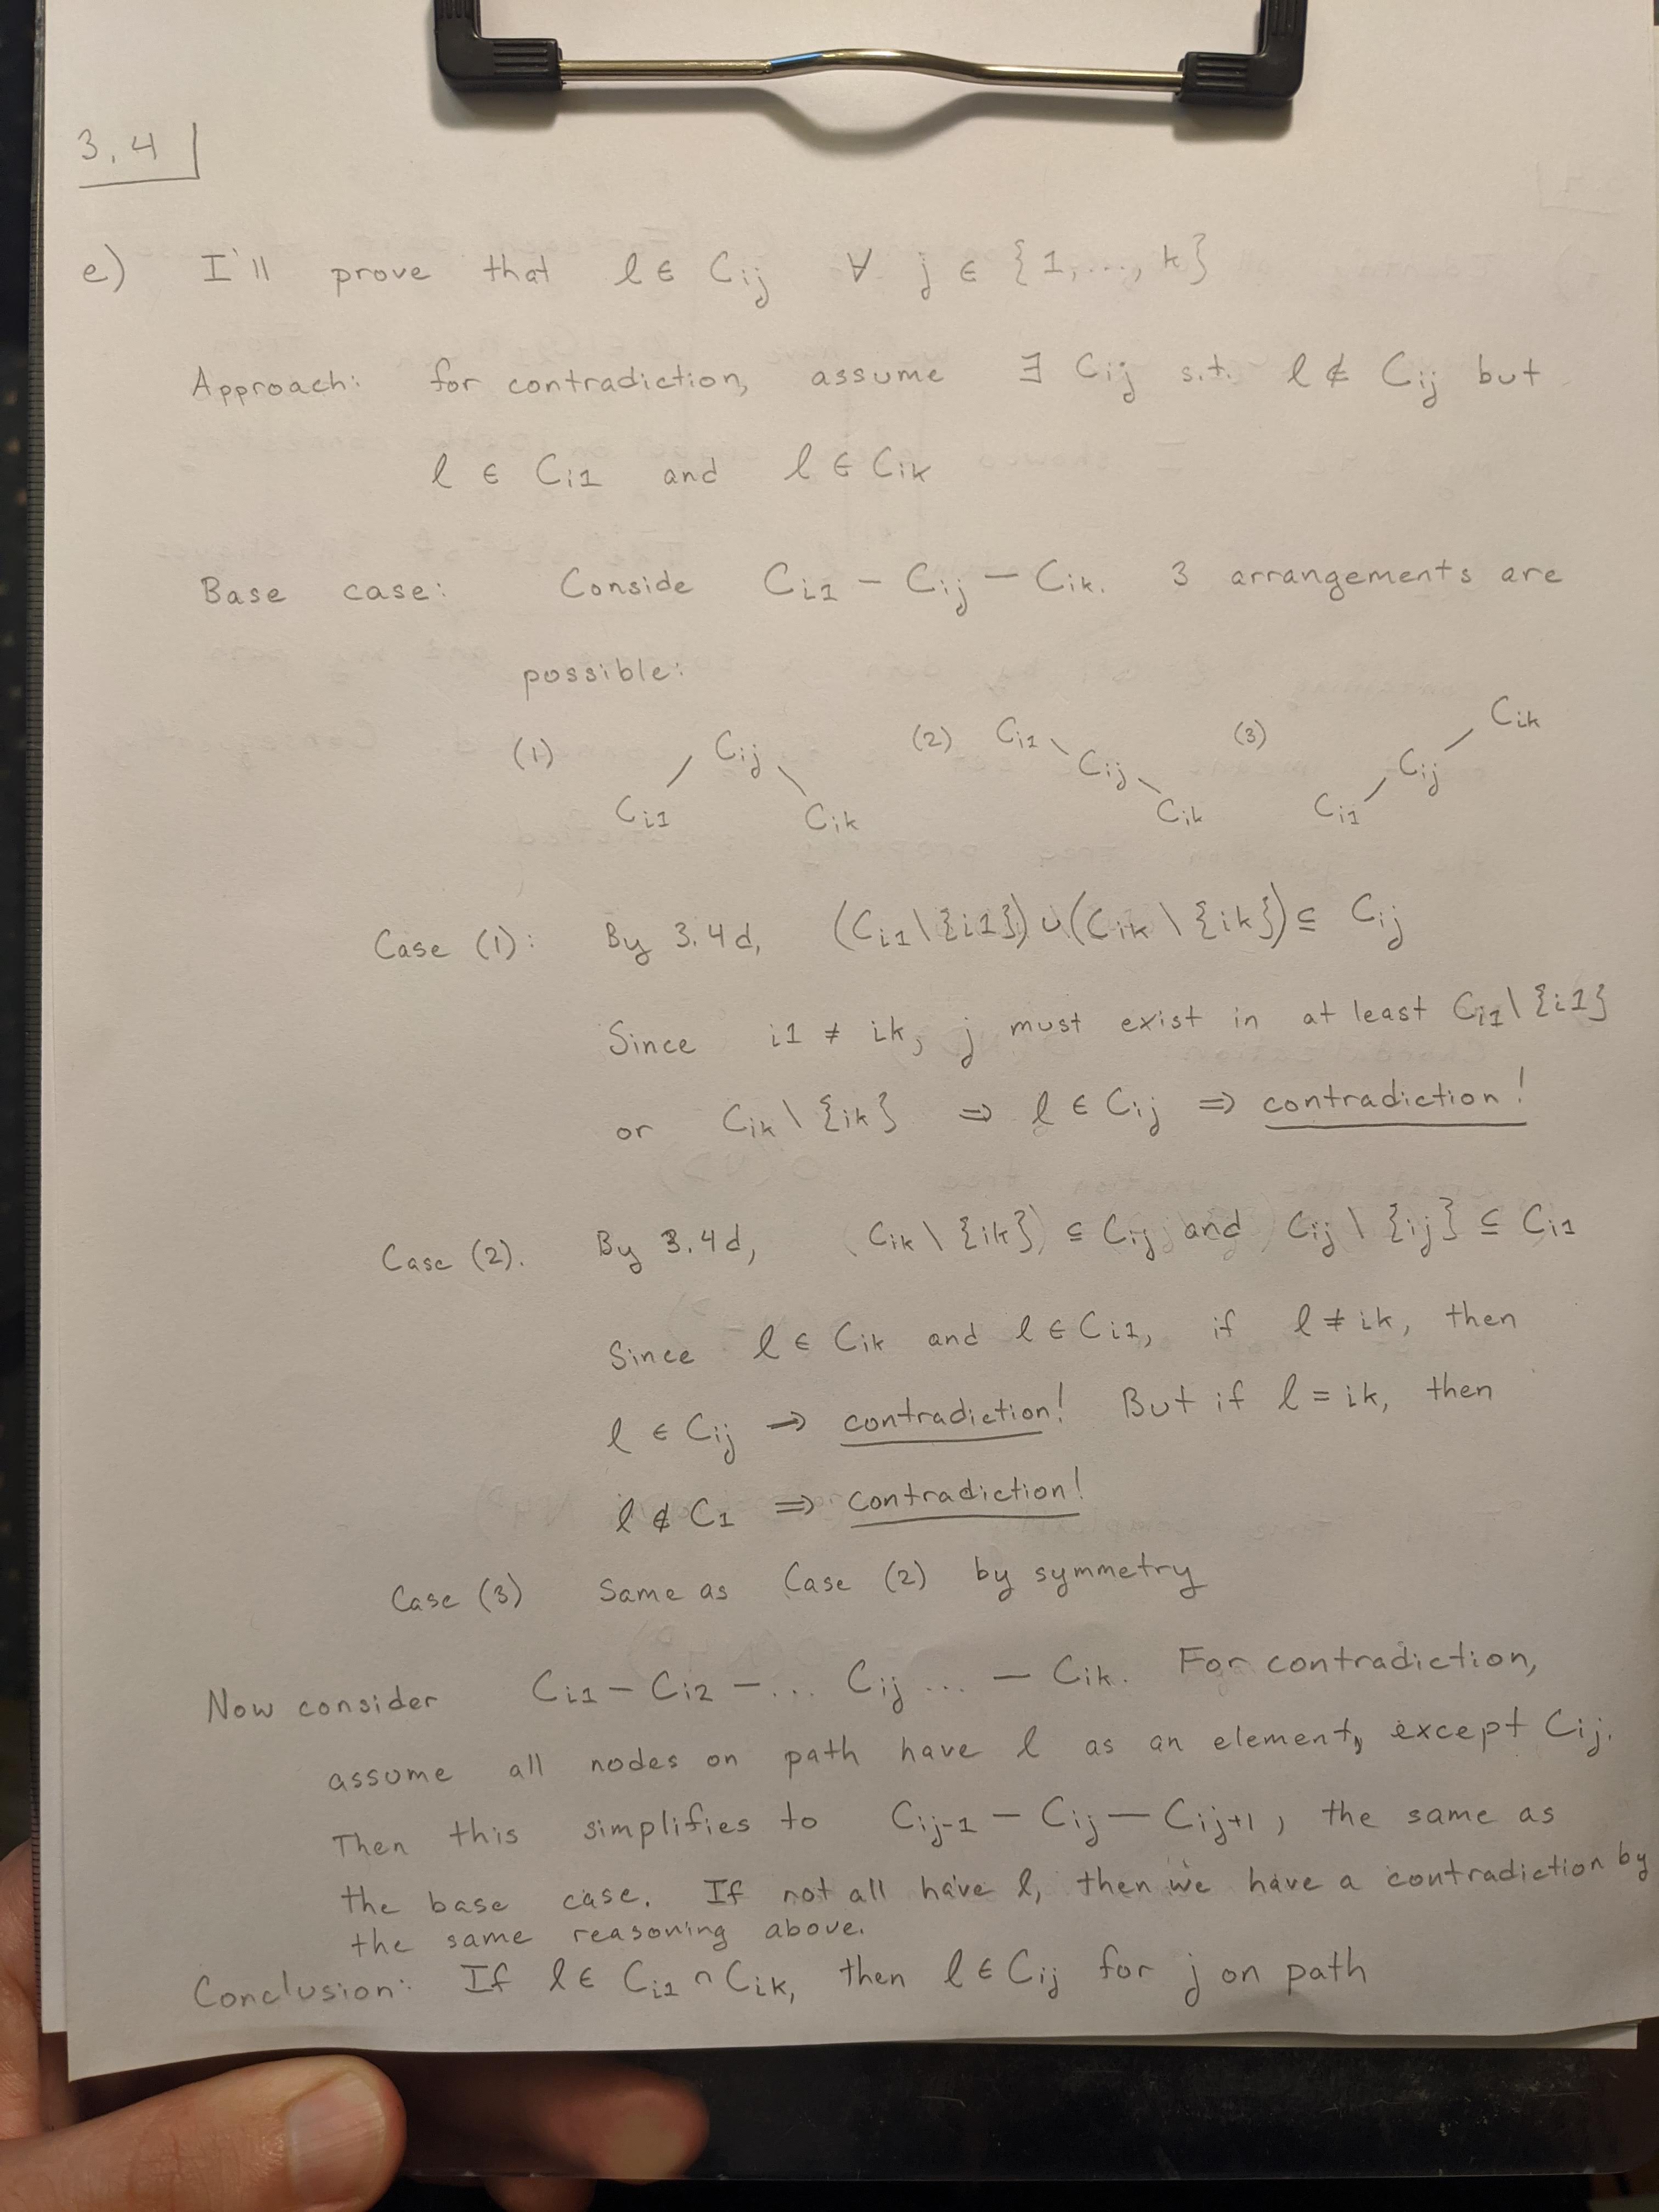 3.4
e) I'll prove that ℓ ∈ Cij ∀ j ∈ {1,..., k}
Approach: for contradiction, assume ∃ Cij s.t. ℓ ∉ Cij but
ℓ ∈ Ci1 and ℓ ∈ Cik
Base case: Conside Ci1 — Cij — Cik. 3 arrangements are
possible:
(1) Cij (2) Ci1 (3) Cik
Cij Cij
Ci1 Cik Cik Ci1
Case (1): By 3.4d, (Ci1\{i1}) ∪ (Cik\{ik}) ⊆ Cij
Since i1 ≠ ik, j must exist in at least Ci1\{i1}
or Cik\{ik} ⇒ ℓ ∈ Cij ⇒ contradiction!
Case (2). By 3.4d, Cik\{ik} ⊆ Cij and Cij\{ij} ⊆ Ci1
Since ℓ ∈ Cik and ℓ ∈ Ci1, if ℓ ≠ ik, then
ℓ ∈ Cij → contradiction! But if ℓ = ik, then
ℓ ∉ C1 ⇒ contradiction!
Case (3) Same as Case (2) by symmetry
Now consider Ci1 — Ci2 — ... Cij ... — Cik. For contradiction,
assume all nodes on path have ℓ as an element, except Cij.
Then this simplifies to Cij-1 — Cij — Cij+1, the same as
the base case. If not all have ℓ, then we have a contradiction by
the same reasoning above.
Conclusion: If ℓ ∈ Ci1 ∩ Cik, then ℓ ∈ Cij for j on path